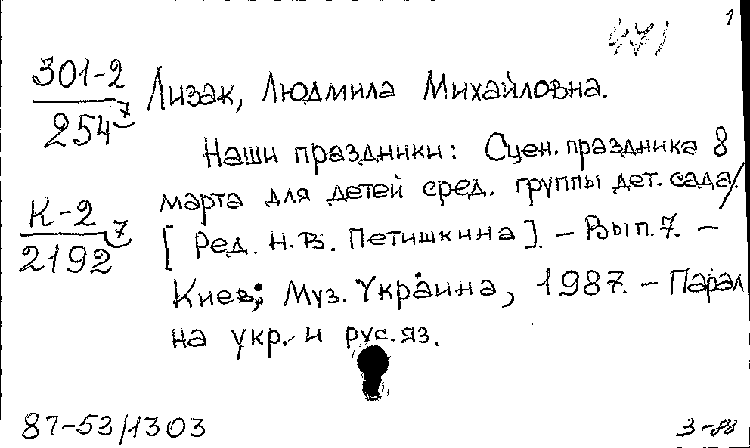 1
471
301-2
254 7
Лизак, Людмила Михайловна.
Наши праздники: Сцен. праздника 8
марта для детей сред. группы дет. сада/
К-2
2192 7
[Ред. Н.В. Петишкина]. - Вып. 7. -
Киев; Муз. Україна, 1987. - Парал
на укр. и рус. яз.
87-53/1303
3-88